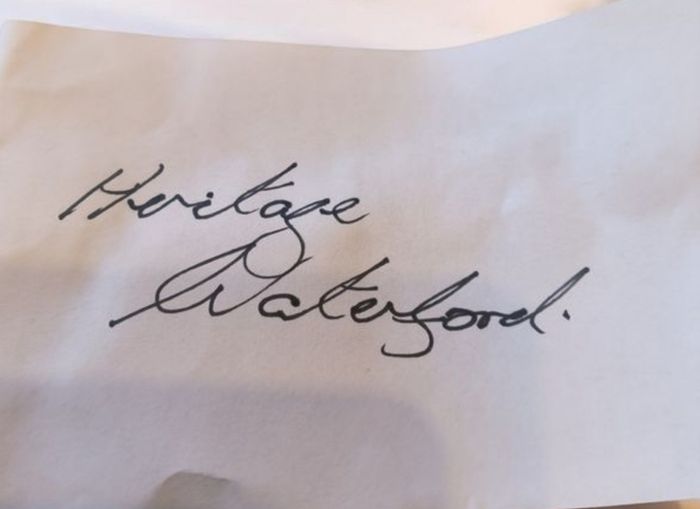 Heritage
Waterford.